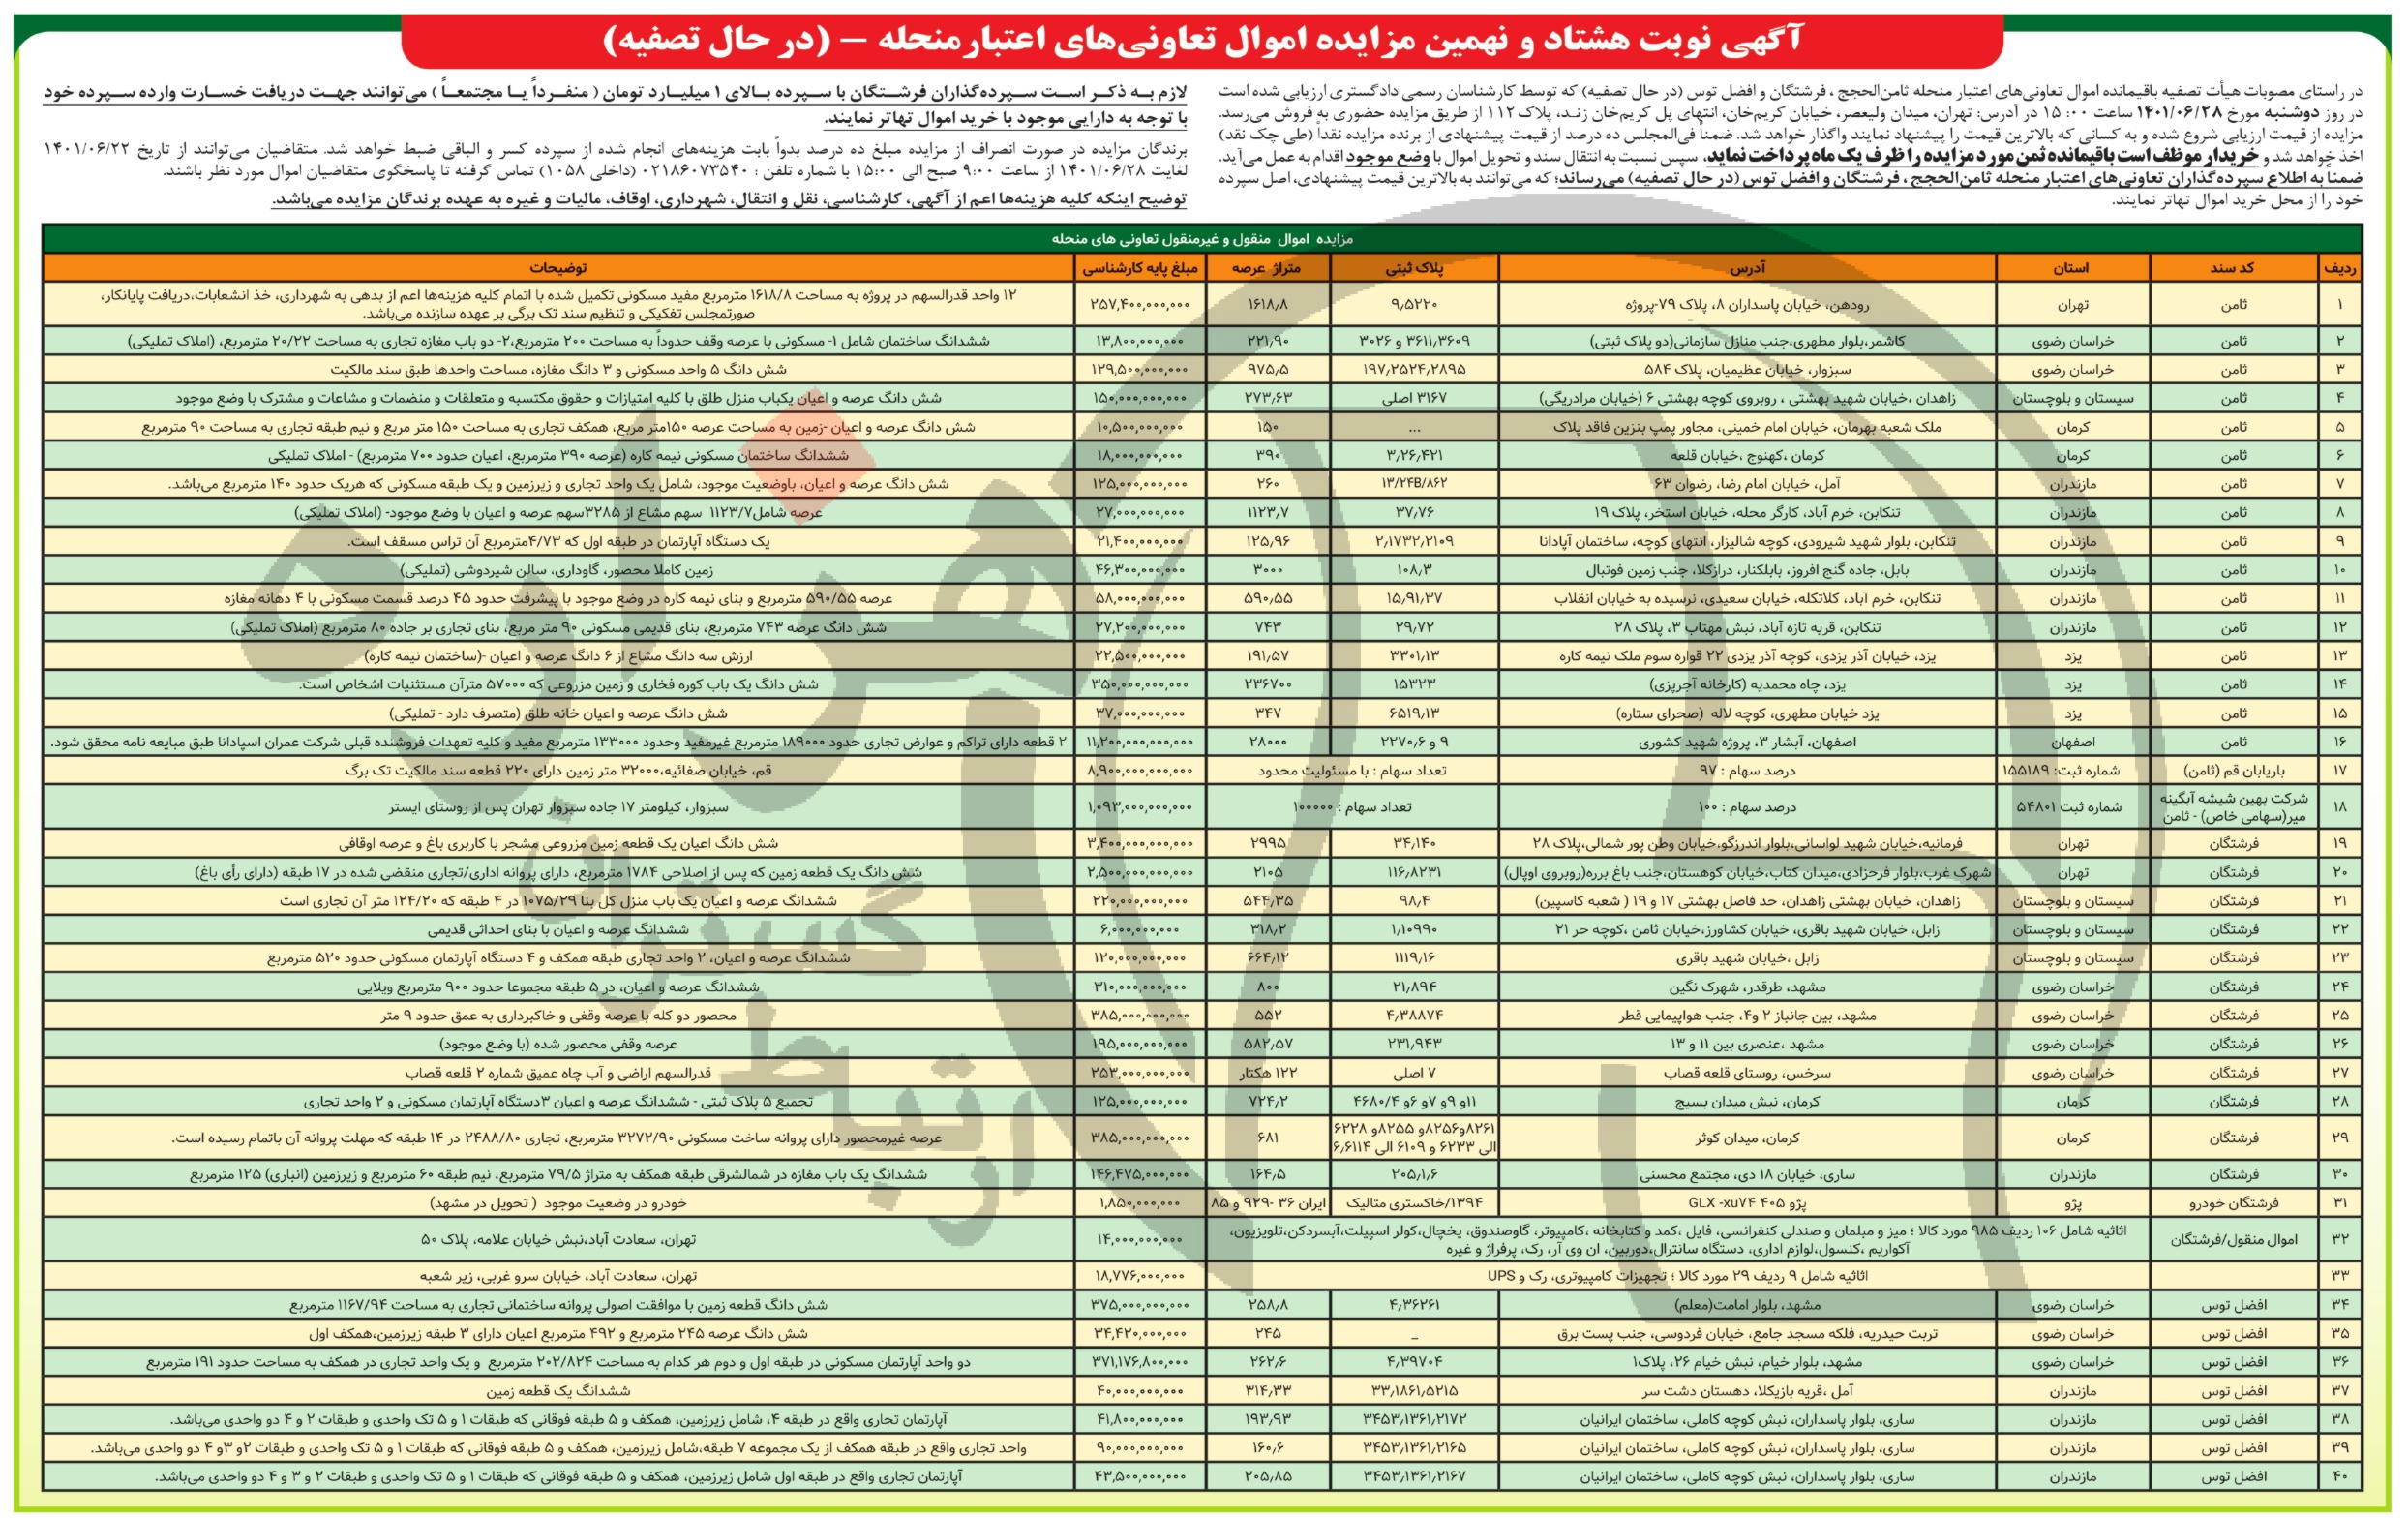 آگهی نوبت هشتاد و نهمین مزایده اموال تعاونی‌های اعتبار منحله – (در حال تصفیه)
در راستای مصوبات هیأت تصفیه باقیمانده اموال تعاونی‌های اعتبار منحله ثامن‌الحجج ، فرشتگان و افضل توس (در حال تصفیه) که توسط کارشناسان رسمی دادگستری ارزیابی شده است
در روز دوشنبه مورخ ۱۴۰۱/۰۶/۲۸ ساعت ۱۵:۰۰ در آدرس: تهران، میدان ولیعصر، خیابان کریم‌خان، انتهای پل کریم‌خان زند، پلاک ۱۱۲ از طریق مزایده حضوری به فروش می‌رسد.
مزایده از قیمت ارزیابی شروع شده و به کسانی که بالاترین قیمت را پیشنهاد نمایند واگذار خواهد شد. ضمناً فی‌المجلس ده درصد از قیمت پیشنهادی از برنده مزایده نقداً (طی چک نقد)
اخذ خواهد شد و خریدار موظف است باقیمانده ثمن مورد مزایده را ظرف یک ماه پرداخت نماید، سپس نسبت به انتقال سند و تحویل اموال با وضع موجود اقدام به عمل می‌آید.
ضمناً به اطلاع سپرده‌گذاران تعاونی‌های اعتبار منحله ثامن‌الحجج ، فرشتگان و افضل توس (در حال تصفیه) می‌رساند؛ که می‌توانند به بالاترین قیمت پیشنهادی، اصل سپرده
خود را از محل خرید اموال تهاتر نمایند.
لازم به ذکر است سپرده‌گذاران فرشتگان با سپرده بالای ۱ میلیارد تومان ( منفرداً یا مجتمعاً ) می‌توانند جهت دریافت خسارت وارده سپرده خود
با توجه به دارایی موجود با خرید اموال تهاتر نمایند.
برندگان مزایده در صورت انصراف از مزایده مبلغ ده درصد بدواً بابت هزینه‌های انجام شده از سپرده کسر و الباقی ضبط خواهد شد. متقاضیان می‌توانند از تاریخ ۱۴۰۱/۰۶/۲۲
لغایت ۱۴۰۱/۰۶/۲۸ از ساعت ۹:۰۰ صبح الی ۱۵:۰۰ با شماره تلفن : ۰۲۱۸۶۰۷۳۵۴۰ (داخلی ۱۰۵۸) تماس گرفته تا پاسخگوی متقاضیان اموال مورد نظر باشند.
توضیح اینکه کلیه هزینه‌ها اعم از آگهی، کارشناسی، نقل و انتقال، شهرداری، اوقاف، مالیات و غیره به عهده برندگان مزایده می‌باشد.
مزایده اموال منقول و غیرمنقول تعاونی های منحله
ردیف کد سند استان آدرس پلاک ثبتی متراژ عرصه مبلغ پایه کارشناسی توضیحات
۱ ثامن تهران رودهن، خیابان پاسداران ۸، پلاک ۷۹-پروژه ۹٫۵۲۲۰ ۱۶۱۸٫۸ ۲۵۷,۴۰۰,۰۰۰,۰۰۰ ۱۲ واحد قدرالسهم در پروژه به مساحت ۱۶۱۸/۸ مترمربع مفید مسکونی تکمیل شده با اتمام کلیه هزینه‌ها اعم از بدهی به شهرداری، خذ انشعابات،دریافت پایانکار،
صورتمجلس تفکیکی و تنظیم سند تک برگی بر عهده سازنده می‌باشد.
۲ ثامن خراسان رضوی کاشمر،بلوار مطهری،جنب منازل سازمانی(دو پلاک ثبتی) ۳۶۱۱٫۳۶۰۹ و ۳۰۲۶ ۲۲۱٫۹۰ ۱۳,۸۰۰,۰۰۰,۰۰۰ ششدانگ ساختمان شامل ۱- مسکونی با عرصه وقف حدوداً به مساحت ۲۰۰ مترمربع،۲- دو باب مغازه تجاری به مساحت ۲۰/۲۲ مترمربع، (املاک تملیکی)
۳ ثامن خراسان رضوی سبزوار، خیابان عظیمیان، پلاک ۵۸۴ ۱۹۷٫۲۵۲۴٫۲۸۹۵ ۹۷۵٫۵ ۱۲۹,۵۰۰,۰۰۰,۰۰۰ شش دانگ ۵ واحد مسکونی و ۳ دانگ مغازه، مساحت واحدها طبق سند مالکیت
۴ ثامن سیستان و بلوچستان زاهدان ،خیابان شهید بهشتی ، روبروی کوچه بهشتی ۶ (خیابان مرادریگی) ۳۱۶۷ اصلی ۲۷۳٫۶۳ ۱۵۰,۰۰۰,۰۰۰,۰۰۰ شش دانگ عرصه و اعیان یکباب منزل طلق با کلیه امتیازات و حقوق مکتسبه و متعلقات و منضمات و مشاعات و مشترک با وضع موجود
۵ ثامن کرمان ملک شعبه بهرمان، خیابان امام خمینی، مجاور پمپ بنزین فاقد پلاک ... ۱۵۰ ۱۰,۵۰۰,۰۰۰,۰۰۰ شش دانگ عرصه و اعیان -زمین به مساحت عرصه ۱۵۰متر مربع، همکف تجاری به مساحت ۱۵۰ متر مربع و نیم طبقه تجاری به مساحت ۹۰ مترمربع
۶ ثامن کرمان کرمان ،کهنوج ،خیابان قلعه ۳٫۲۶٫۴۲۱ ۳۹۰ ۱۸,۰۰۰,۰۰۰,۰۰۰ ششدانگ ساختمان مسکونی نیمه کاره (عرصه ۳۹۰ مترمربع، اعیان حدود ۷۰۰ مترمربع) - املاک تملیکی
۷ ثامن مازندران آمل، خیابان امام رضا، رضوان ۶۳ ۱۳/۲۴B/۸۶۲ ۲۶۰ ۱۲۵,۰۰۰,۰۰۰,۰۰۰ شش دانگ عرصه و اعیان، باوضعیت موجود، شامل یک واحد تجاری و زیرزمین و یک طبقه مسکونی که هریک حدود ۱۴۰ مترمربع می‌باشد.
۸ ثامن مازندران تنکابن، خرم آباد، کارگر محله، خیابان استخر، پلاک ۱۹ ۳۷٫۷۶ ۱۱۲۳٫۷ ۲۷,۰۰۰,۰۰۰,۰۰۰ عرصه شامل۱۱۲۳/۷ سهم مشاع از ۳۲۸۵سهم عرصه و اعیان با وضع موجود- (املاک تملیکی)
۹ ثامن مازندران تنکابن، بلوار شهید شیرودی، کوچه شالیزار، انتهای کوچه، ساختمان آپادانا ۲٫۱۷۳۲٫۲۱۰۹ ۱۲۵٫۹۶ ۲۱,۴۰۰,۰۰۰,۰۰۰ یک دستگاه آپارتمان در طبقه اول که ۴/۷۳مترمربع آن تراس مسقف است.
۱۰ ثامن مازندران بابل، جاده گنج افروز، بابلکنار، درازکلا، جنب زمین فوتبال ۱۰۸٫۳ ۳۰۰۰ ۴۶,۳۰۰,۰۰۰,۰۰۰ زمین کاملا محصور، گاوداری، سالن شیردوشی (تملیکی)
۱۱ ثامن مازندران تنکابن، خرم آباد، کلاتکله، خیابان سعیدی، نرسیده به خیابان انقلاب ۱۵٫۹۱٫۳۷ ۵۹۰٫۵۵ ۵۸,۰۰۰,۰۰۰,۰۰۰ عرصه ۵۹۰/۵۵ مترمربع و بنای نیمه کاره در وضع موجود با پیشرفت حدود ۴۵ درصد قسمت مسکونی با ۴ دهانه مغازه
۱۲ ثامن مازندران تنکابن، قریه تازه آباد، نبش مهتاب ۳، پلاک ۲۸ ۲۹٫۷۲ ۷۴۳ ۲۷,۲۰۰,۰۰۰,۰۰۰ شش دانگ عرصه ۷۴۳ مترمربع، بنای قدیمی مسکونی ۹۰ متر مربع، بنای تجاری بر جاده ۸۰ مترمربع (املاک تملیکی)
۱۳ ثامن یزد یزد، خیابان آذر یزدی، کوچه آذر یزدی ۲۲ قواره سوم ملک نیمه کاره ۳۳۰۱٫۱۳ ۱۹۱٫۵۷ ۲۲,۵۰۰,۰۰۰,۰۰۰ ارزش سه دانگ مشاع از ۶ دانگ عرصه و اعیان -(ساختمان نیمه کاره)
۱۴ ثامن یزد یزد، چاه محمدیه (کارخانه آجرپزی) ۱۵۳۲۳ ۲۳۶۷۰۰ ۳۵۰,۰۰۰,۰۰۰,۰۰۰ شش دانگ یک باب کوره فخاری و زمین مزروعی که ۵۷۰۰۰ مترآن مستثنیات اشخاص است.
۱۵ ثامن یزد یزد خیابان مطهری، کوچه لاله (صحرای ستاره) ۶۵۱۹٫۱۳ ۳۴۷ ۳۷,۰۰۰,۰۰۰,۰۰۰ شش دانگ عرصه و اعیان خانه طلق (متصرف دارد - تملیکی)
۱۶ ثامن اصفهان اصفهان، آبشار ۳، پروژه شهید کشوری ۹ و ۲۲۷۰٫۶ ۲۸۰۰۰ ۱۱,۲۰۰,۰۰۰,۰۰۰,۰۰۰ ۲ قطعه دارای تراکم و عوارض تجاری حدود ۱۸۹۰۰۰ مترمربع غیرمفید وحدود ۱۳۳۰۰۰ مترمربع مفید و کلیه تعهدات فروشنده قبلی شرکت عمران اسپادانا طبق مبایعه نامه محقق شود.
۱۷ باریابان قم (ثامن) شماره ثبت: ۱۵۵۱۸۹ درصد سهام : ۹۷ تعداد سهام : با مسئولیت محدود ۸,۹۰۰,۰۰۰,۰۰۰,۰۰۰ قم، خیابان صفائیه،۳۲۰۰۰ متر زمین دارای ۲۲۰ قطعه سند مالکیت تک برگ
۱۸ شرکت بهین شیشه آبگینه میر(سهامی خاص) - ثامن شماره ثبت ۵۴۸۰۱ درصد سهام : ۱۰۰ تعداد سهام : ۱۰۰۰۰۰ ۱,۰۹۳,۰۰۰,۰۰۰,۰۰۰ سبزوار، کیلومتر ۱۷ جاده سبزوار تهران پس از روستای ایستر
۱۹ فرشتگان تهران فرمانیه،خیابان شهید لواسانی،بلوار اندرزگو،خیابان وطن پور شمالی،پلاک ۲۸ ۳۴٫۱۴۰ ۲۹۹۵ ۳,۴۰۰,۰۰۰,۰۰۰,۰۰۰ شش دانگ اعیان یک قطعه زمین مزروعی مشجر با کاربری باغ و عرصه اوقافی
۲۰ فرشتگان تهران شهرک غرب،بلوار فرحزادی،میدان کتاب،خیابان کوهستان،جنب باغ برره(روبروی اوپال) ۱۱۶٫۸۲۳۱ ۲۱۰۵ ۲,۵۰۰,۰۰۰,۰۰۰,۰۰۰ شش دانگ یک قطعه زمین که پس از اصلاحی ۱۷۸۴ مترمربع، دارای پروانه اداری/تجاری منقضی شده در ۱۷ طبقه (دارای رأی باغ)
۲۱ فرشتگان سیستان و بلوچستان زاهدان، خیابان بهشتی زاهدان، حد فاصل بهشتی ۱۷ و ۱۹ ( شعبه کاسپین) ۹۸٫۴ ۵۴۴٫۳۵ ۲۲۰,۰۰۰,۰۰۰,۰۰۰ ششدانگ عرصه و اعیان یک باب منزل کل بنا ۱۰۷۵/۲۹ در ۴ طبقه که ۱۲۴/۲۰ متر آن تجاری است
۲۲ فرشتگان سیستان و بلوچستان زابل، خیابان شهید باقری، خیابان کشاورز،خیابان ثامن ،کوچه حر ۲۱ ۱٫۱۰۹۹۰ ۳۱۸٫۲ ۶,۰۰۰,۰۰۰,۰۰۰ ششدانگ عرصه و اعیان با بنای احداثی قدیمی
۲۳ فرشتگان سیستان و بلوچستان زابل ،خیابان شهید باقری ۱۱۱۹٫۱۶ ۶۶۴٫۱۲ ۱۲۰,۰۰۰,۰۰۰,۰۰۰ ششدانگ عرصه و اعیان، ۲ واحد تجاری طبقه همکف و ۴ دستگاه آپارتمان مسکونی حدود ۵۲۰ مترمربع
۲۴ فرشتگان خراسان رضوی مشهد، طرقدر، شهرک نگین ۲۱٫۸۹۴ ۸۰۰ ۳۱۰,۰۰۰,۰۰۰,۰۰۰ ششدانگ عرصه و اعیان، در ۵ طبقه مجموعا حدود ۹۰۰ مترمربع ویلایی
۲۵ فرشتگان خراسان رضوی مشهد، بین جانباز ۲ و۴، جنب هواپیمایی قطر ۴٫۳۸۸۷۴ ۵۵۲ ۳۸۵,۰۰۰,۰۰۰,۰۰۰ محصور دو کله با عرصه وقفی و خاکبرداری به عمق حدود ۹ متر
۲۶ فرشتگان خراسان رضوی مشهد ،عنصری بین ۱۱ و ۱۳ ۲۳۱٫۹۴۳ ۵۸۲٫۵۷ ۱۹۵,۰۰۰,۰۰۰,۰۰۰ عرصه وقفی محصور شده (با وضع موجود)
۲۷ فرشتگان خراسان رضوی سرخس، روستای قلعه قصاب ۷ اصلی ۱۲۲ هکتار ۲۵۳,۰۰۰,۰۰۰,۰۰۰ قدرالسهم اراضی و آب چاه عمیق شماره ۲ قلعه قصاب
۲۸ فرشتگان کرمان کرمان، نبش میدان بسیج ۱۱و ۹و ۷و ۶و ۴۶۸۰/۴ ۷۲۴٫۲ ۱۲۵,۰۰۰,۰۰۰,۰۰۰ تجمیع ۵ پلاک ثبتی - ششدانگ عرصه و اعیان ۳دستگاه آپارتمان مسکونی و ۲ واحد تجاری
۲۹ فرشتگان کرمان کرمان، میدان کوثر ۸۲۶۱و۸۲۵۶و ۸۲۵۵و ۶۲۲۸ الی ۶۲۳۳ و ۶۱۰۹ الی ۶٫۶۱۱۴ ۶۸۱ ۳۸۵,۰۰۰,۰۰۰,۰۰۰ عرصه غیرمحصور دارای پروانه ساخت مسکونی ۳۲۷۲/۹۰ مترمربع، تجاری ۲۴۸۸/۸۰ در ۱۴ طبقه که مهلت پروانه آن باتمام رسیده است.
۳۰ فرشتگان مازندران ساری، خیابان ۱۸ دی، مجتمع محسنی ۲۰۵٫۱٫۶ ۱۶۴٫۵ ۱۴۶,۴۷۵,۰۰۰,۰۰۰ ششدانگ یک باب مغازه در شمالشرقی طبقه همکف به متراژ ۷۹/۵ مترمربع، نیم طبقه ۶۰ مترمربع و زیرزمین (انباری) ۱۲۵ مترمربع
۳۱ فرشتگان خودرو پژو پژو ۴۰۵ GLX -xu۷۴ ۱۳۹۴/خاکستری متالیک ایران ۳۶ -۹۲۹ و ۸۵ ۱,۸۵۰,۰۰۰,۰۰۰ خودرو در وضعیت موجود ( تحویل در مشهد)
۳۲ اموال منقول/فرشتگان اثاثیه شامل ۱۰۶ ردیف ۹۸۵ مورد کالا ؛ میز و مبلمان و صندلی کنفرانسی، فایل ،کمد و کتابخانه ،کامپیوتر، گاوصندوق، یخچال،کولر اسپیلت،آبسردکن،تلویزیون،
آکواریم ،کنسول،لوازم اداری، دستگاه سانترال،دوربین، ان وی آر، رک، پرفراژ و غیره ۱۴,۰۰۰,۰۰۰,۰۰۰ تهران، سعادت آباد،نبش خیابان علامه، پلاک ۵۰
۳۳ اثاثیه شامل ۹ ردیف ۲۹ مورد کالا ؛ تجهیزات کامپیوتری، رک و UPS ۱۸,۷۷۶,۰۰۰,۰۰۰ تهران، سعادت آباد، خیابان سرو غربی، زیر شعبه
۳۴ افضل توس خراسان رضوی مشهد، بلوار امامت(معلم) ۴٫۳۶۲۶۱ ۲۵۸٫۸ ۳۷۵,۰۰۰,۰۰۰,۰۰۰ شش دانگ قطعه زمین با موافقت اصولی پروانه ساختمانی تجاری به مساحت ۱۱۶۷/۹۴ مترمربع
۳۵ افضل توس خراسان رضوی تربت حیدریه، فلکه مسجد جامع، خیابان فردوسی، جنب پست برق _ ۲۴۵ ۳۴,۴۲۰,۰۰۰,۰۰۰ شش دانگ عرصه ۲۴۵ مترمربع و ۴۹۲ مترمربع اعیان دارای ۳ طبقه زیرزمین،همکف اول
۳۶ افضل توس خراسان رضوی مشهد، بلوار خیام، نبش خیام ۲۶، پلاک۱ ۴٫۳۹۷۰۴ ۲۶۲٫۶ ۳۷۱,۱۷۶,۸۰۰,۰۰۰ دو واحد آپارتمان مسکونی در طبقه اول و دوم هر کدام به مساحت ۲۰۲/۸۲۴ مترمربع و یک واحد تجاری در همکف به مساحت حدود ۱۹۱ مترمربع
۳۷ افضل توس مازندران آمل ،قریه بازیکلا، دهستان دشت سر ۳۳٫۱۸۶۱٫۵۲۱۵ ۳۱۴٫۳۳ ۴۰,۰۰۰,۰۰۰,۰۰۰ ششدانگ یک قطعه زمین
۳۸ افضل توس مازندران ساری، بلوار پاسداران، نبش کوچه کاملی، ساختمان ایرانیان ۳۴۵۳٫۱۳۶۱٫۲۱۷۲ ۱۹۳٫۹۳ ۴۱,۸۰۰,۰۰۰,۰۰۰ آپارتمان تجاری واقع در طبقه ۴، شامل زیرزمین، همکف و ۵ طبقه فوقانی که طبقات ۱ و ۵ تک واحدی و طبقات ۲ و ۴ دو واحدی می‌باشد.
۳۹ افضل توس مازندران ساری، بلوار پاسداران، نبش کوچه کاملی، ساختمان ایرانیان ۳۴۵۳٫۱۳۶۱٫۲۱۶۵ ۱۶۰٫۶ ۹۰,۰۰۰,۰۰۰,۰۰۰ واحد تجاری واقع در طبقه همکف از یک مجموعه ۷ طبقه،شامل زیرزمین، همکف و ۵ طبقه فوقانی که طبقات ۱ و ۵ تک واحدی و طبقات ۲و ۳و ۴ دو واحدی می‌باشد.
۴۰ افضل توس مازندران ساری، بلوار پاسداران، نبش کوچه کاملی، ساختمان ایرانیان ۳۴۵۳٫۱۳۶۱٫۲۱۶۷ ۲۰۵٫۸۵ ۴۳,۵۰۰,۰۰۰,۰۰۰ آپارتمان تجاری واقع در طبقه اول شامل زیرزمین، همکف و ۵ طبقه فوقانی که طبقات ۱ و ۵ تک واحدی و طبقات ۲ و ۳ و ۴ دو واحدی می‌باشد.
هزاره
گستران
ارتباط